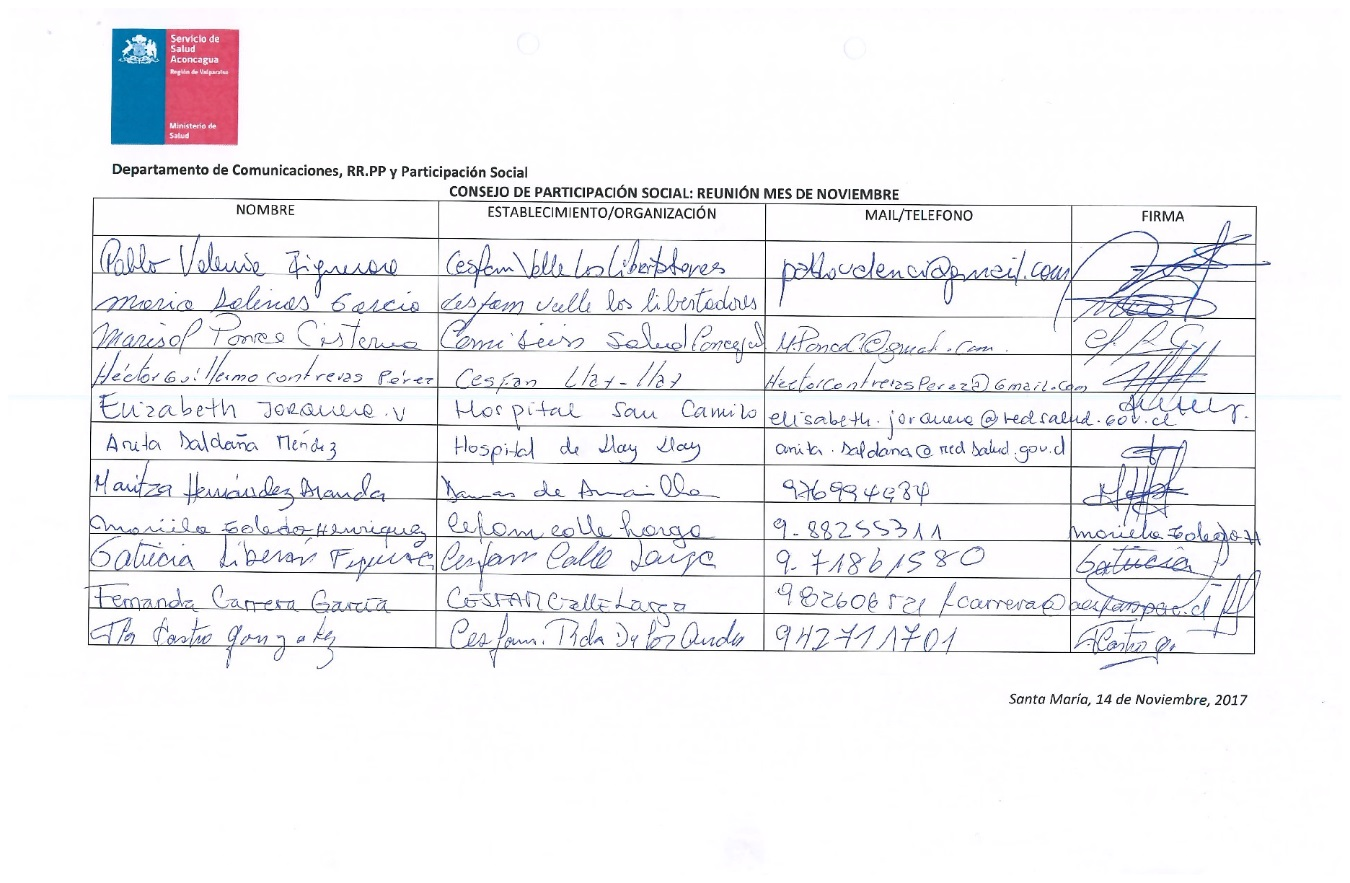 Servicio de
Salud
Aconcagua
Región de Valparaíso
Ministerio de
Salud
Departamento de Comunicaciones, RR.PP y Participación Social
CONSEJO DE PARTICIPACIÓN SOCIAL: REUNIÓN MES DE NOVIEMBRE
NOMBRE ESTABLECIMIENTO/ORGANIZACIÓN MAIL/TELEFONO FIRMA
Pablo Valencia Figueroa Cesfam Valle Los Libertadores
Maria Salinas Garcia Cesfam valle los libertadores
Marisol Ponce Cisterna Comisión Salud Concejal
Héctor Guillermo Contreras Pérez Cesfan Llay-Llay HectorContrerasPerez@Gmail.com
Elizabeth Jorquera. V Hospital San Camilo elisabeth.jorquera@redsalud.gov.cl
Anita Saldaña Méndez Hospital de Llay Llay anita.saldana@redsalud.gov.cl
Maritza Hernández Aranda Damas de 
Mariela Toledo Henriquez Cesfam calle larga 9-88255311 Mariela Toledo H
Liberón Cesfam Calle Larga 9-71861580
Fernanda Carrera García CESFAM Calle Larga
Castro Gonzalez Cesfam. Rda De Los Andes 942711701
Santa María, 14 de Noviembre, 2017